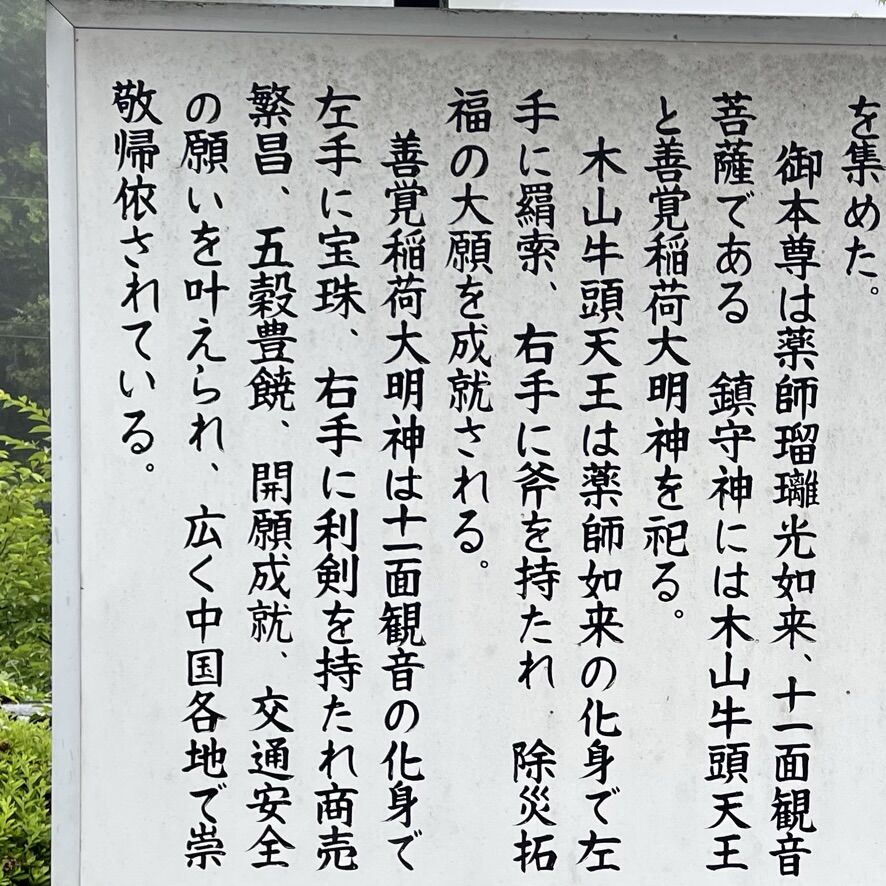 を集めた。
御本尊は薬師瑠璃光如来、十一面観音
菩薩である　鎮守神には木山牛頭天王
と善覚稲荷大明神を祀る。
木山牛頭天王は薬師如来の化身で左
手に羂索、右手に斧を持たれ　除災拓
福の大願を成就される。
善覚稲荷大明神は十一面観音の化身で
左手に宝珠、右手に利剣を持たれ商売
繁昌、五穀豊饒、開願成就、交通安全
の願いを叶えられ、広く中国各地で崇
敬帰依されている。